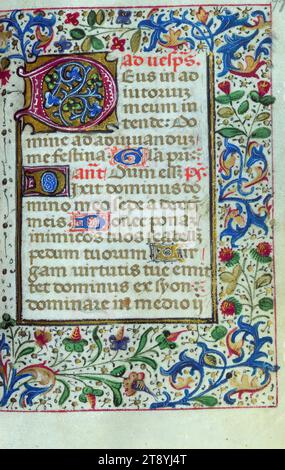 ad uesps.
Deus in ad
iutoriuz
meum in
tende: Do
mine ad adiuuanduz
me festina. Gla pri.
ant. Dum esset. ps.
Dixit dominus do
mino meo: sede a dextris
meis. Donec ponam
inimicos tuos scabellu
pedum tuorum. Vir
gam virtutis tue emit
tet dominus ex syon:
dominare in medio ij
alamy